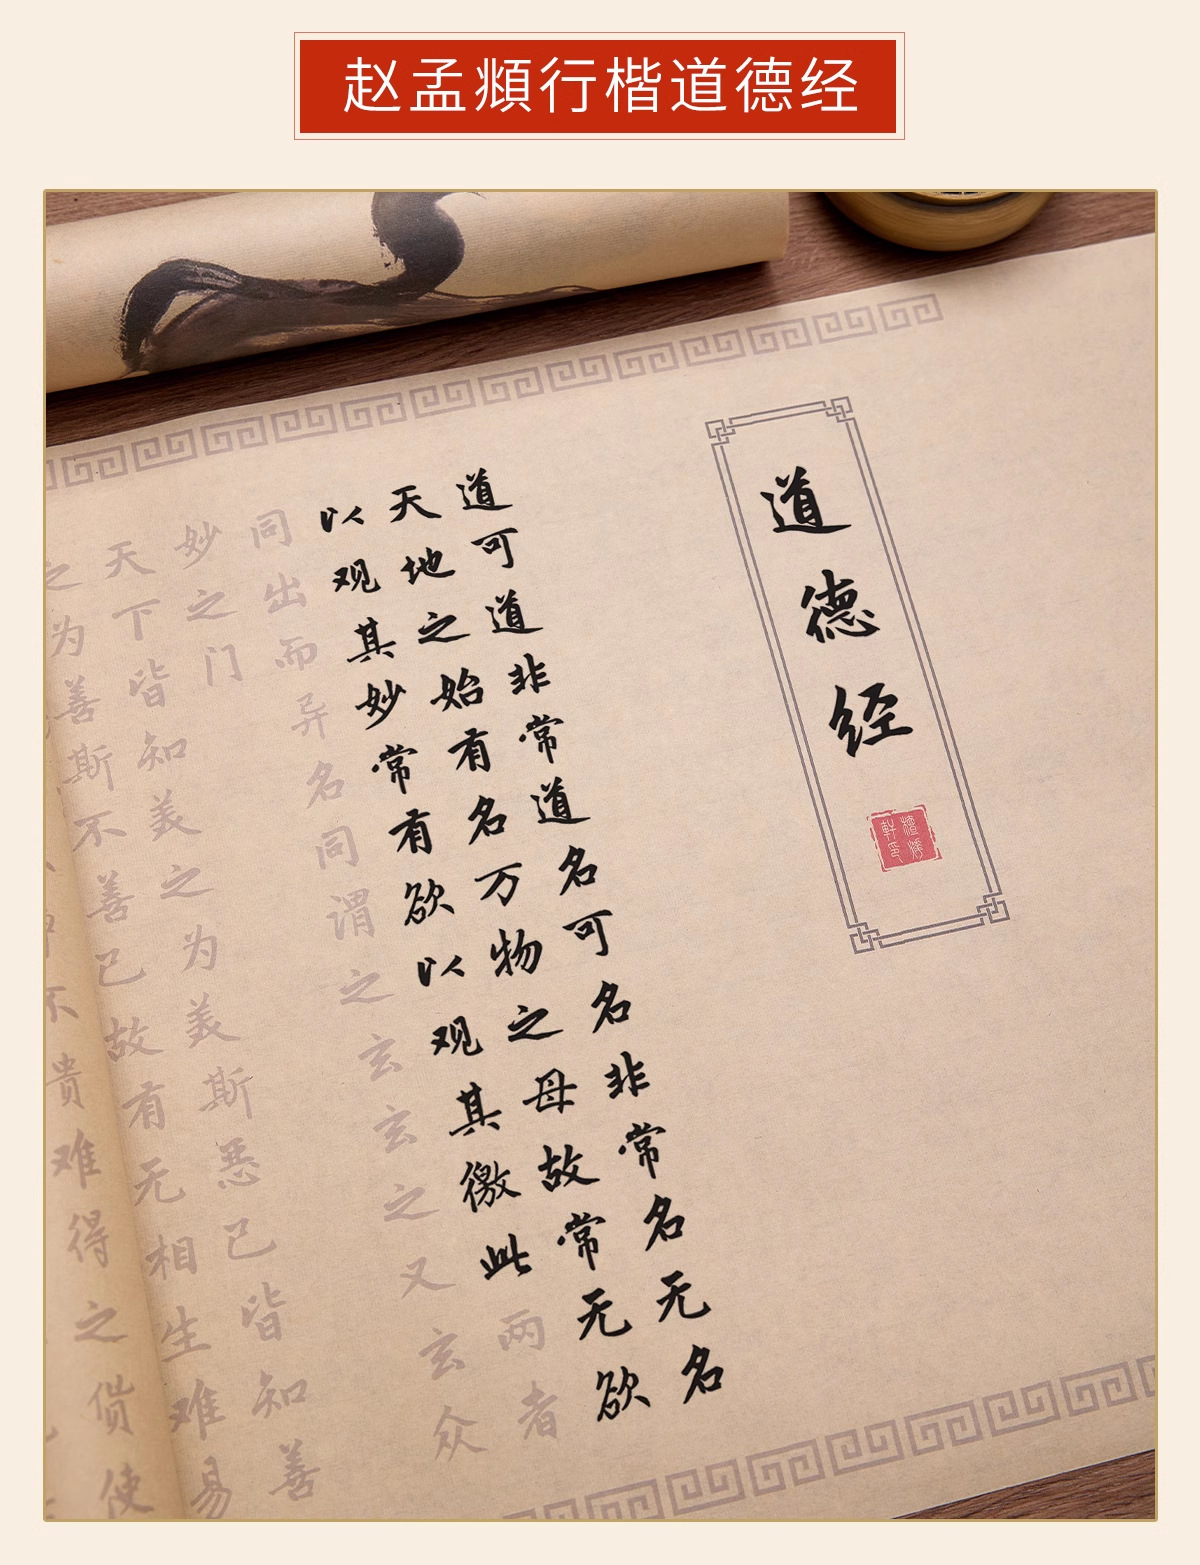 赵孟頫行楷道德经
道德经
道可道非常道名可名非常名无名
天地之始有名万物之母故常无欲
以观其妙常有欲以观其徼此两者
同出而异名同谓之玄玄之又玄众
妙之门
天下皆知美之为美斯恶已皆知善
之为善斯不善已故有无相生难易
不贵难得之货使